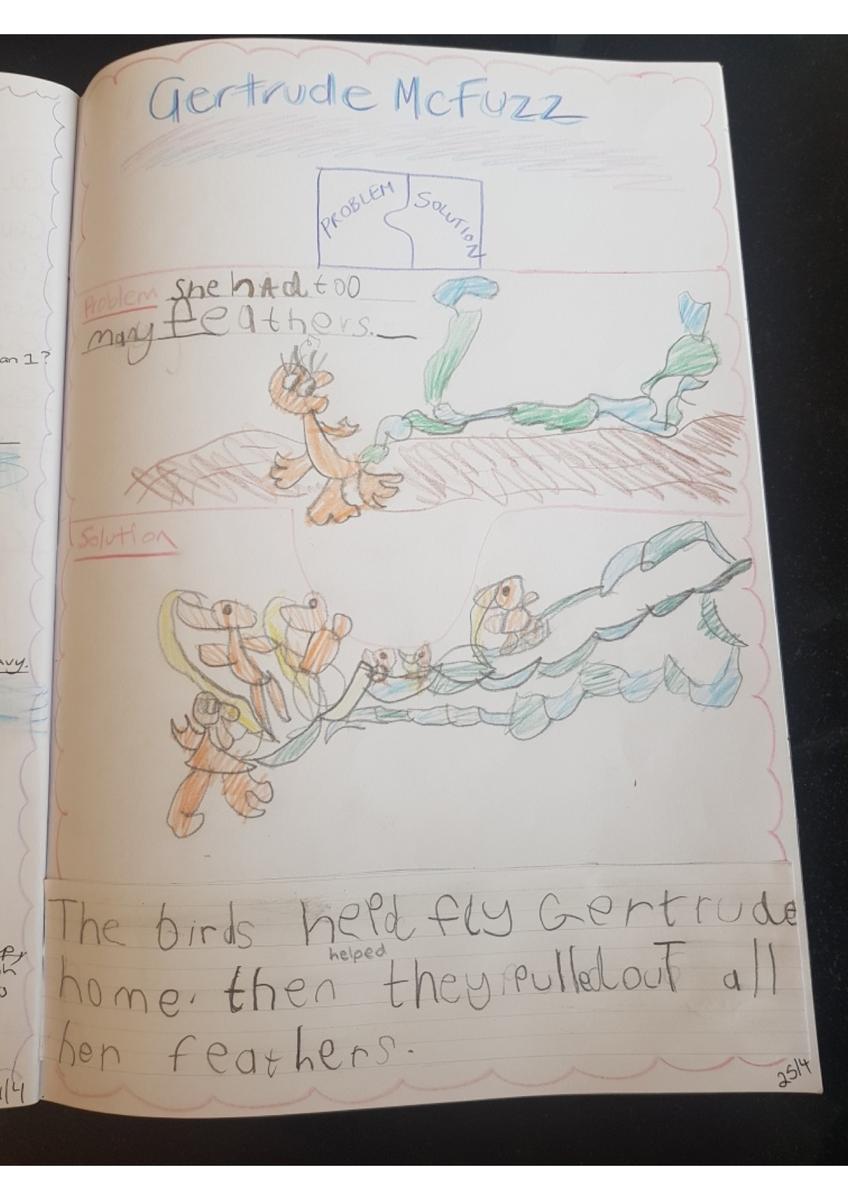 Gertrude McFuzz
PROBLEM SOLUTION
Problem She had too
many feathers.
Solution
The birds helpd fly Gertrude
helped
home. then they pulled out all
her feathers.
25/4
an 1?
avy.